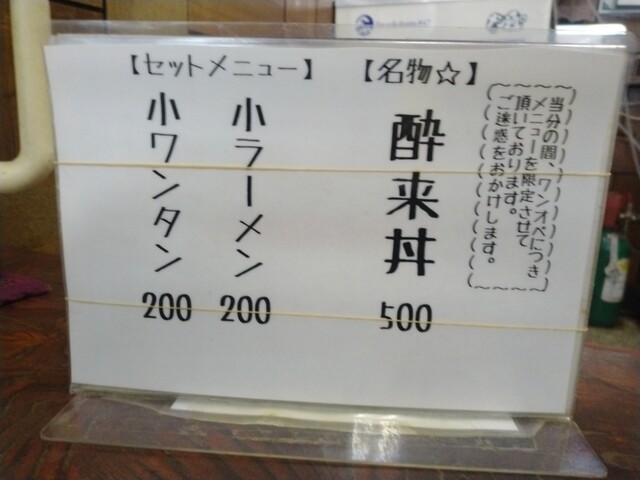 当分の間、ワンオペにつき
メニューを限定させて
頂いております。
ご迷惑をおかけします。
【名物☆】
酔来丼
500
【セットメニュー】
小ラーメン
200
小ワンタン
200